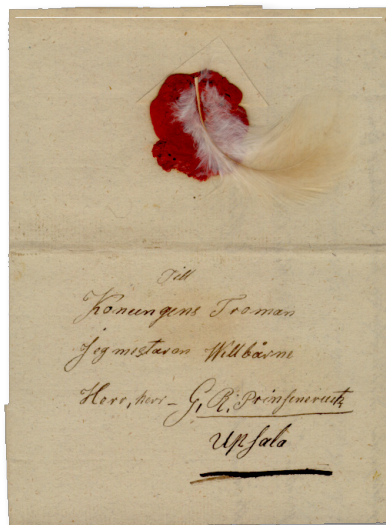 Till
Konungens Troman
Jægmestaren Wällbårne
Herr, herr – G, R, Prinsencreutz
Upsala